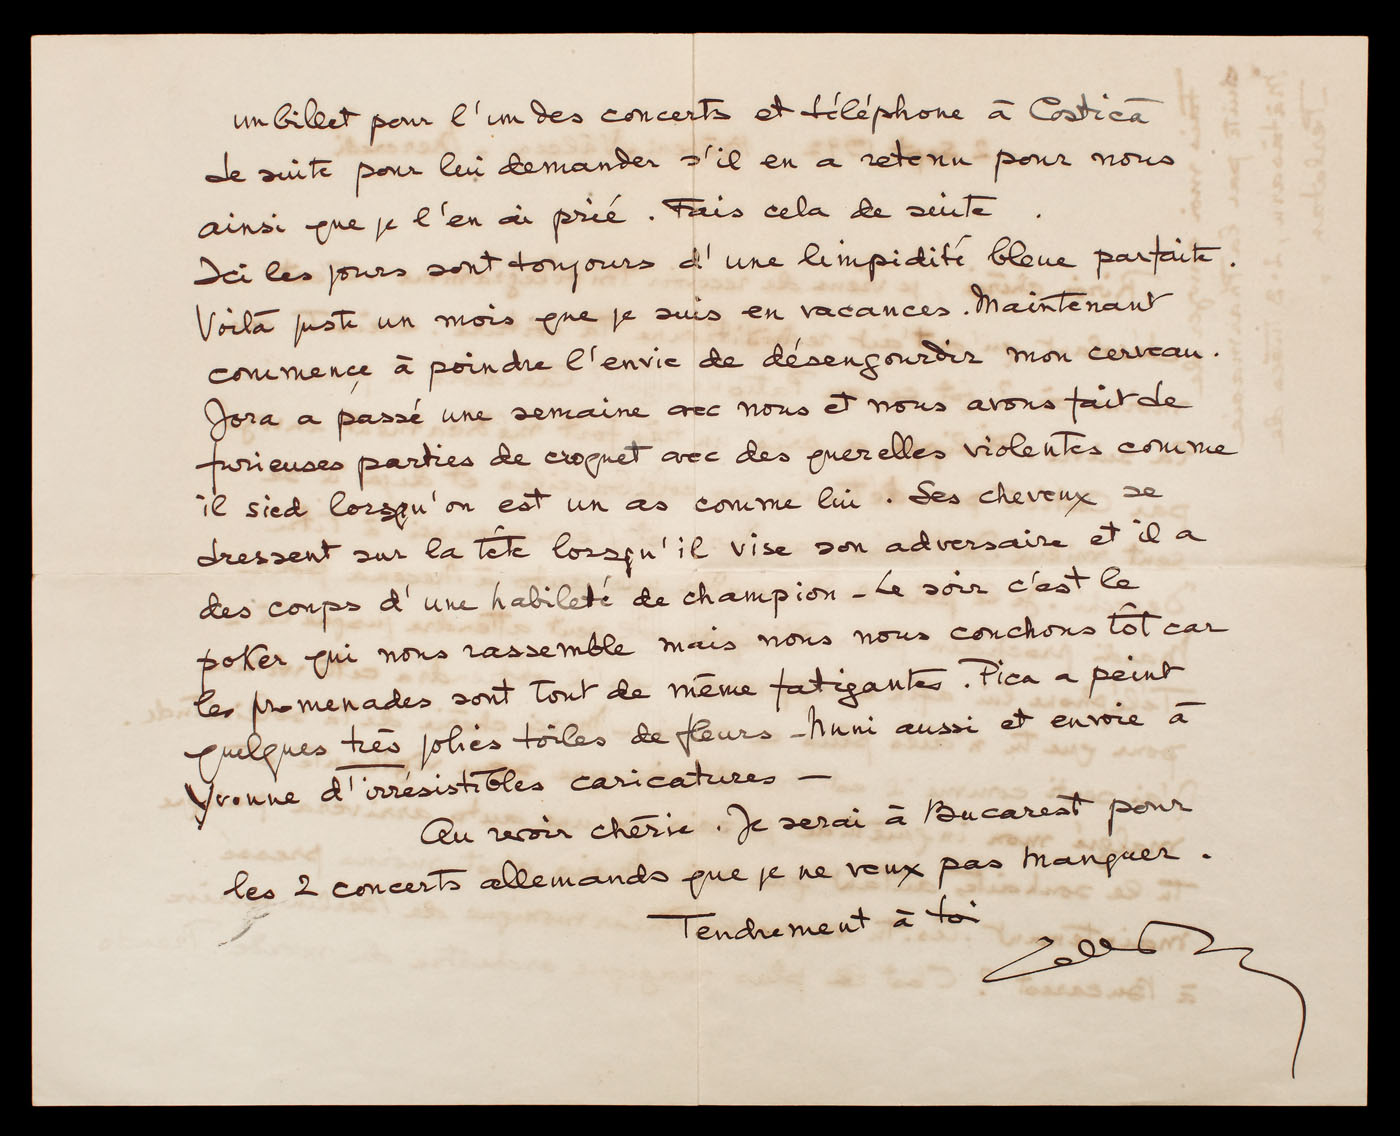 un billet pour l'un des concerts et téléphone à Costică
de suite pour lui demander s'il en a retenu pour nous
ainsi que je l'en ai prié. Fais cela de suite.
Ici les jours sont toujours d'une limpidité bleue parfaite.
Voilà juste un mois que je suis en vacances. Maintenant
commence à poindre l'envie de désengourdir mon cerveau.
Jora a passé une semaine avec nous et nous avons fait de
furieuses parties de croquet avec des querelles violentes comme
il sied lorsqu'on est un as comme lui. Ses cheveux se
dressent sur la tête lorsqu'il vise son adversaire et il a
des coups d'une habileté de champion - Le soir c'est le
poker qui nous rassemble mais nous nous couchons tôt car
les promenades sont tout de même fatigantes. Pica a peint
quelques très jolies toiles de fleurs - Nuni aussi et envoie à
Yvonne d'irrésistibles caricatures -
Au revoir chérie. Je serai à Bucarest pour
les 2 concerts allemands que je ne veux pas manquer.
Tendrement à toi